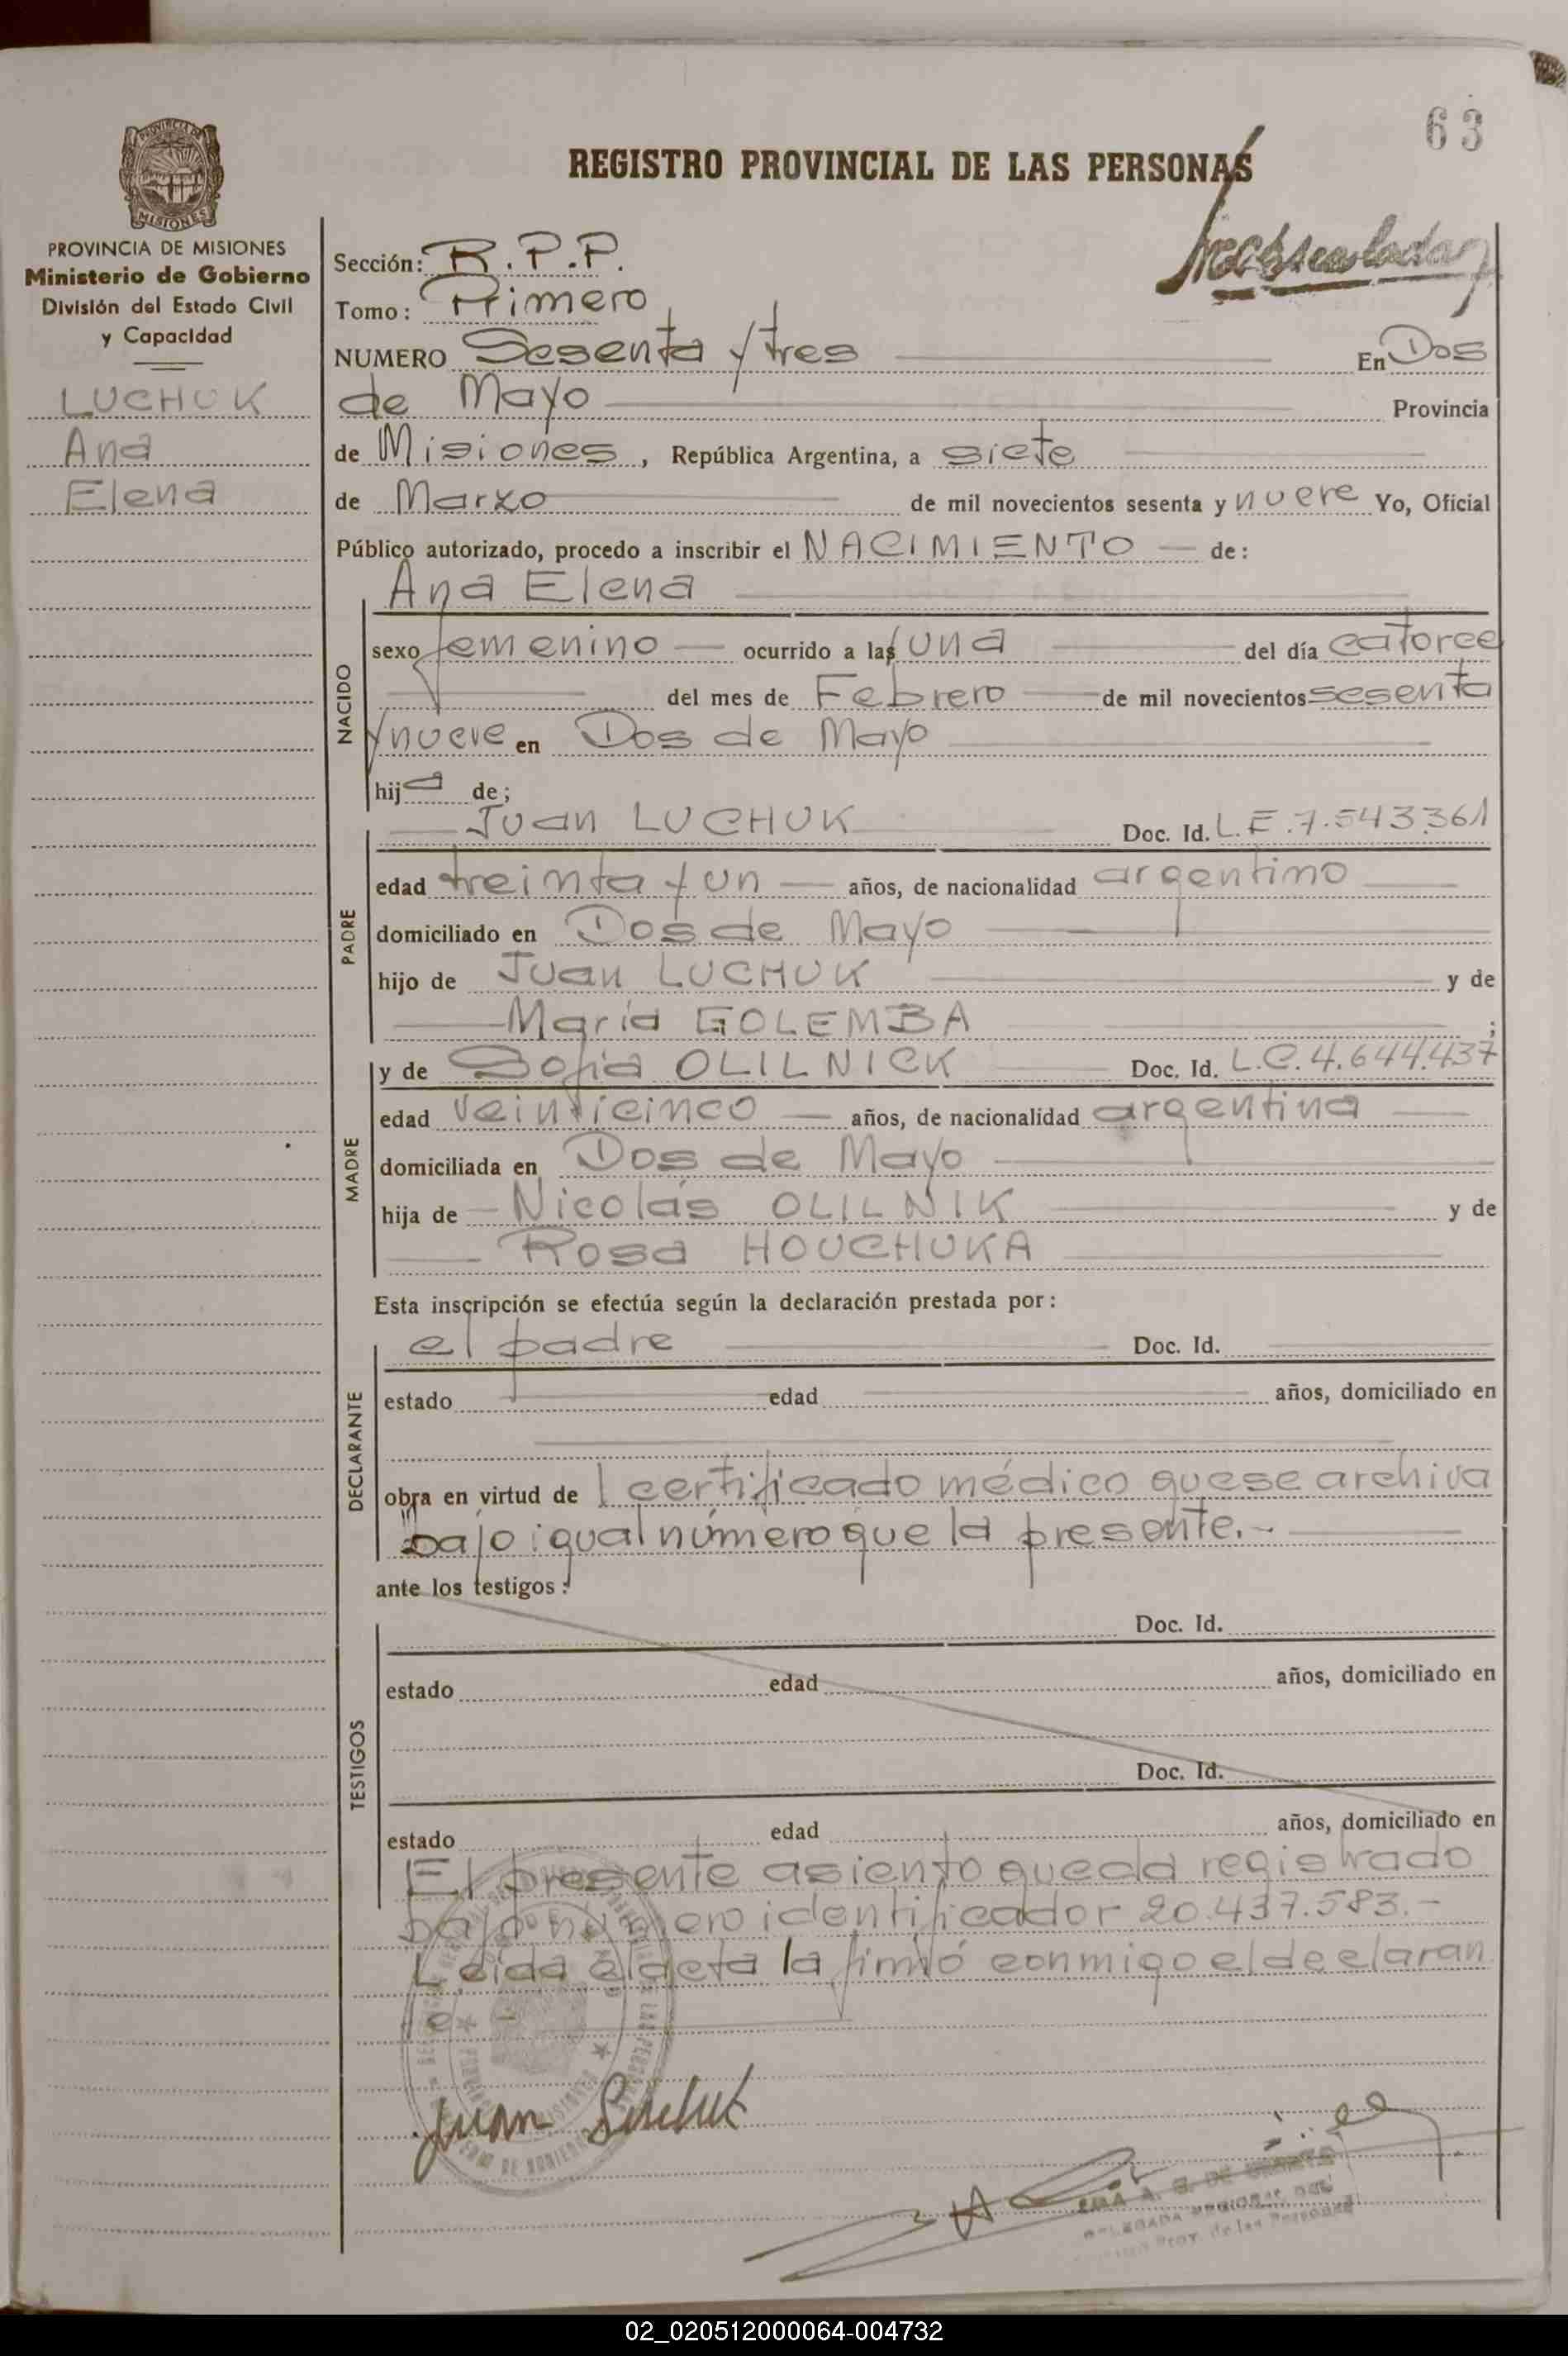 63
REGISTRO PROVINCIAL DE LAS PERSONAS
PROVINCIA DE
MISIONES
PROVINCIA DE MISIONES
Ministerio de Gobierno
División del Estado Civil
y Capacidad
LUCHUK
Ana
Elena
Sección: R.P.P.
Tomo: Primero
NUMERO Sesenta y tres En Dos
de Mayo Provincia
de Misiones, República Argentina, a siete
de Marzo de mil novecientos sesenta y nueve Yo, Oficial
Público autorizado, procedo a inscribir el NACIMIENTO de:
Ana Elena
NACIDO
sexo femenino ocurrido a las una del día catorce
del mes de Febrero de mil novecientos sesenta
y nueve en Dos de Mayo
hija de;
PADRE
Juan LUCHUK Doc. Id. L.E.7.543.361
edad treinta y un años, de nacionalidad argentino
domiciliado en Dos de Mayo
hijo de Juan LUCHUK y de
María GOLEMBA ;
MADRE
y de Sofia OLILNICK Doc. Id. L.C.4.644.437
edad veinticinco años, de nacionalidad argentina
domiciliada en Dos de Mayo
hija de Nicolás OLILNIK y de
Rosa HOUCHUKA
Esta inscripción se efectúa según la declaración prestada por:
DECLARANTE
el padre Doc. Id.
estado edad años, domiciliado en
obra en virtud de 1 certificado médico que se archiva
bajo igual número que la presente.-
ante los testigos:
TESTIGOS
Doc. Id.
estado edad años, domiciliado en
Doc. Id.
estado edad años, domiciliado en
El presente asiento queda registrado
bajo número identificador 20.437.583.-
Leida el acta la firmó conmigo el declaran
te.-
Juan
DELEGADA REGIONAL DEL
Prov. de las Personas
02_020512000064-004732